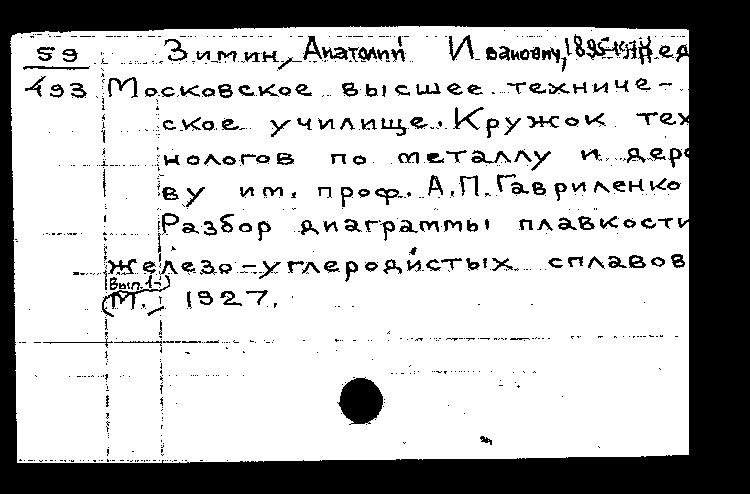 59 Зимин, Анатолий Иванович, 1895-1974 ред
493 Московское высшее техниче-
ское училище. Кружок тех
нологов по металлу и дере
ву им. проф. А.П. Гавриленко
Разбор диаграммы плавкости
железо-углеродистых сплавов
Вып. 1-
М. 1927.